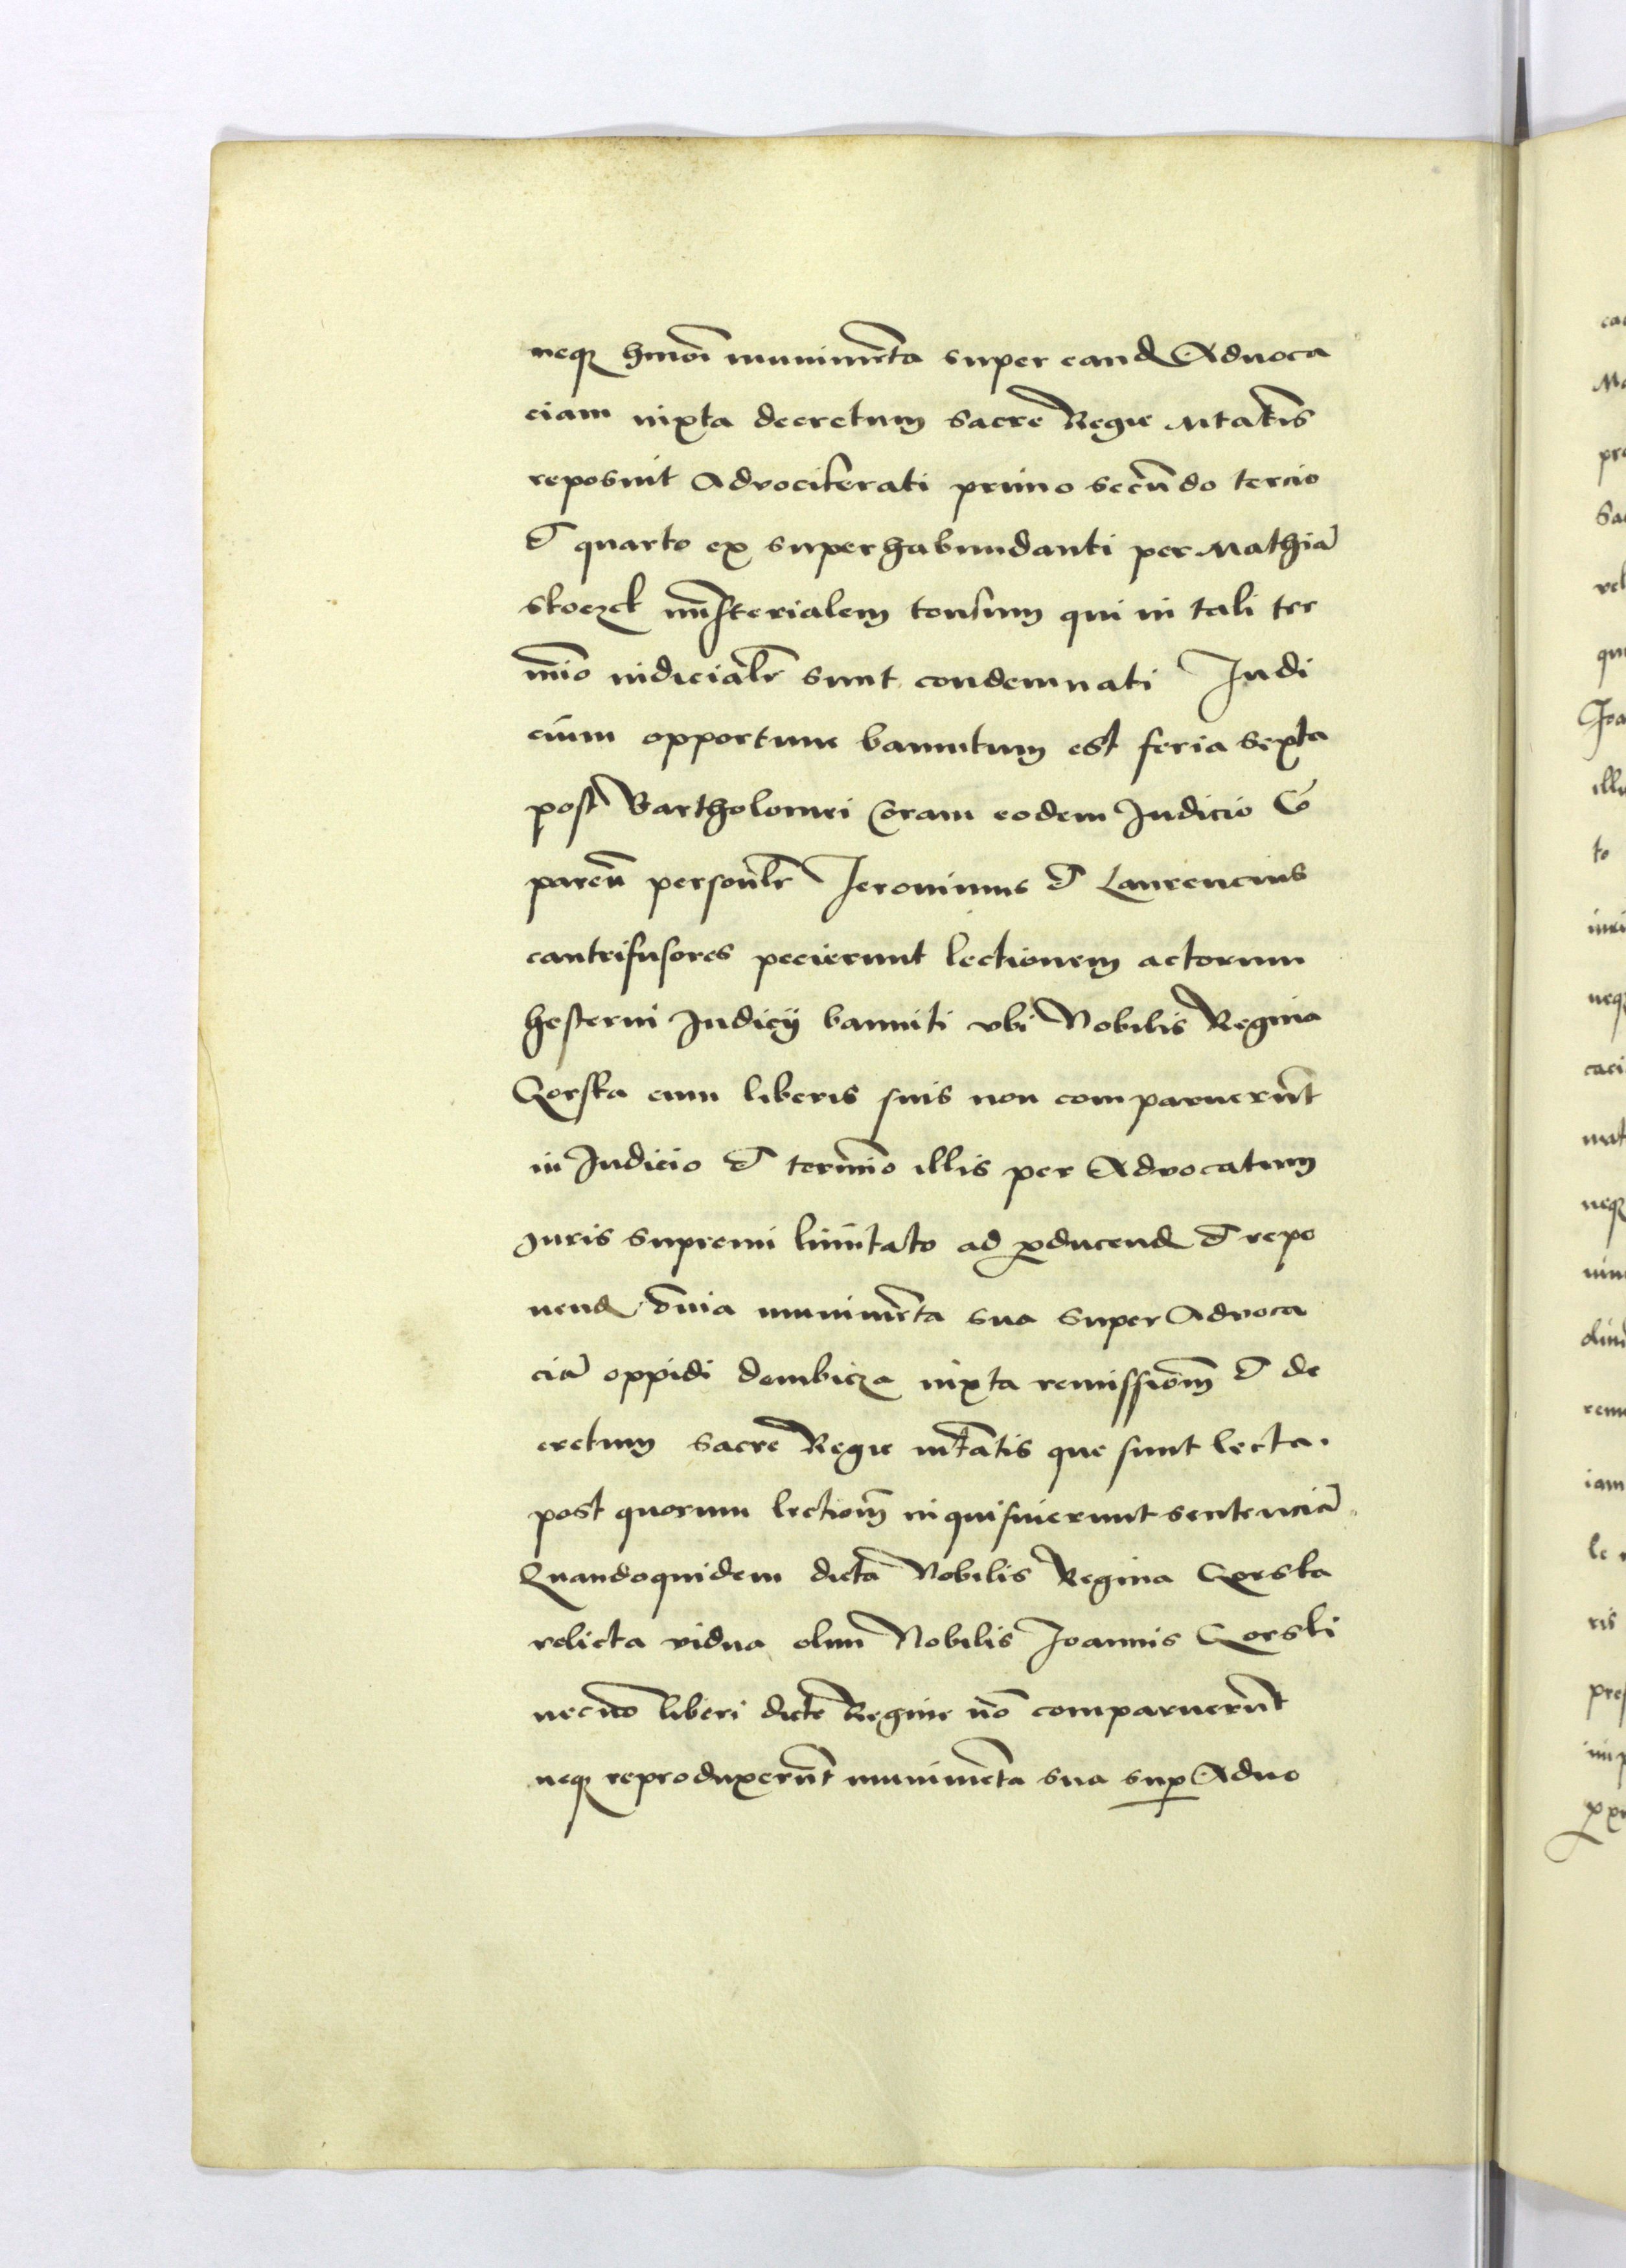 neq̃ hmoĩ munimẽta super eand̃ Aduoca
ciam iuxta decretum sacre Regie Mtatis
reposuit Advociferati primo secũdo tercio
et quarto ex superhabundanti per Mathiã
skoczek miñsterialem tonsum qui in tali ter
mĩo iudicialr̃ sunt condemnati Judi
cium opportune bannitum est feria sexta
post Bartholomei Coram eodem Judicio Cõ
parẽn personlr̃ Jeronimus et Laurencius
cantrifusores pecierunt lectionem actorum
hesterni Judicij banniti vbi Nobilis Regina
Gorska cum liberis suis non comparuerũt
in Judicio et termĩo illis per Advocatum
Juris supremi limitato ad ꝓducend̃ et repo
nend̃ om̃ia munimẽta sua super Advoca
ciã oppidi dembicza iuxta remissioñm et de
cretum sacre Regie mtãtis que sunt lecta.
post quorum lectioñm inquisiuerunt sentenciã
Quandoquidem dictã Nobilis Regina Gorska
relicta vidua olim Nobilis Joannis Gorski
necnõ liberi dictẽ Regine nõ comparuerũt
neq̃ reproduxerũt munimẽta sua suꝑ Aduo